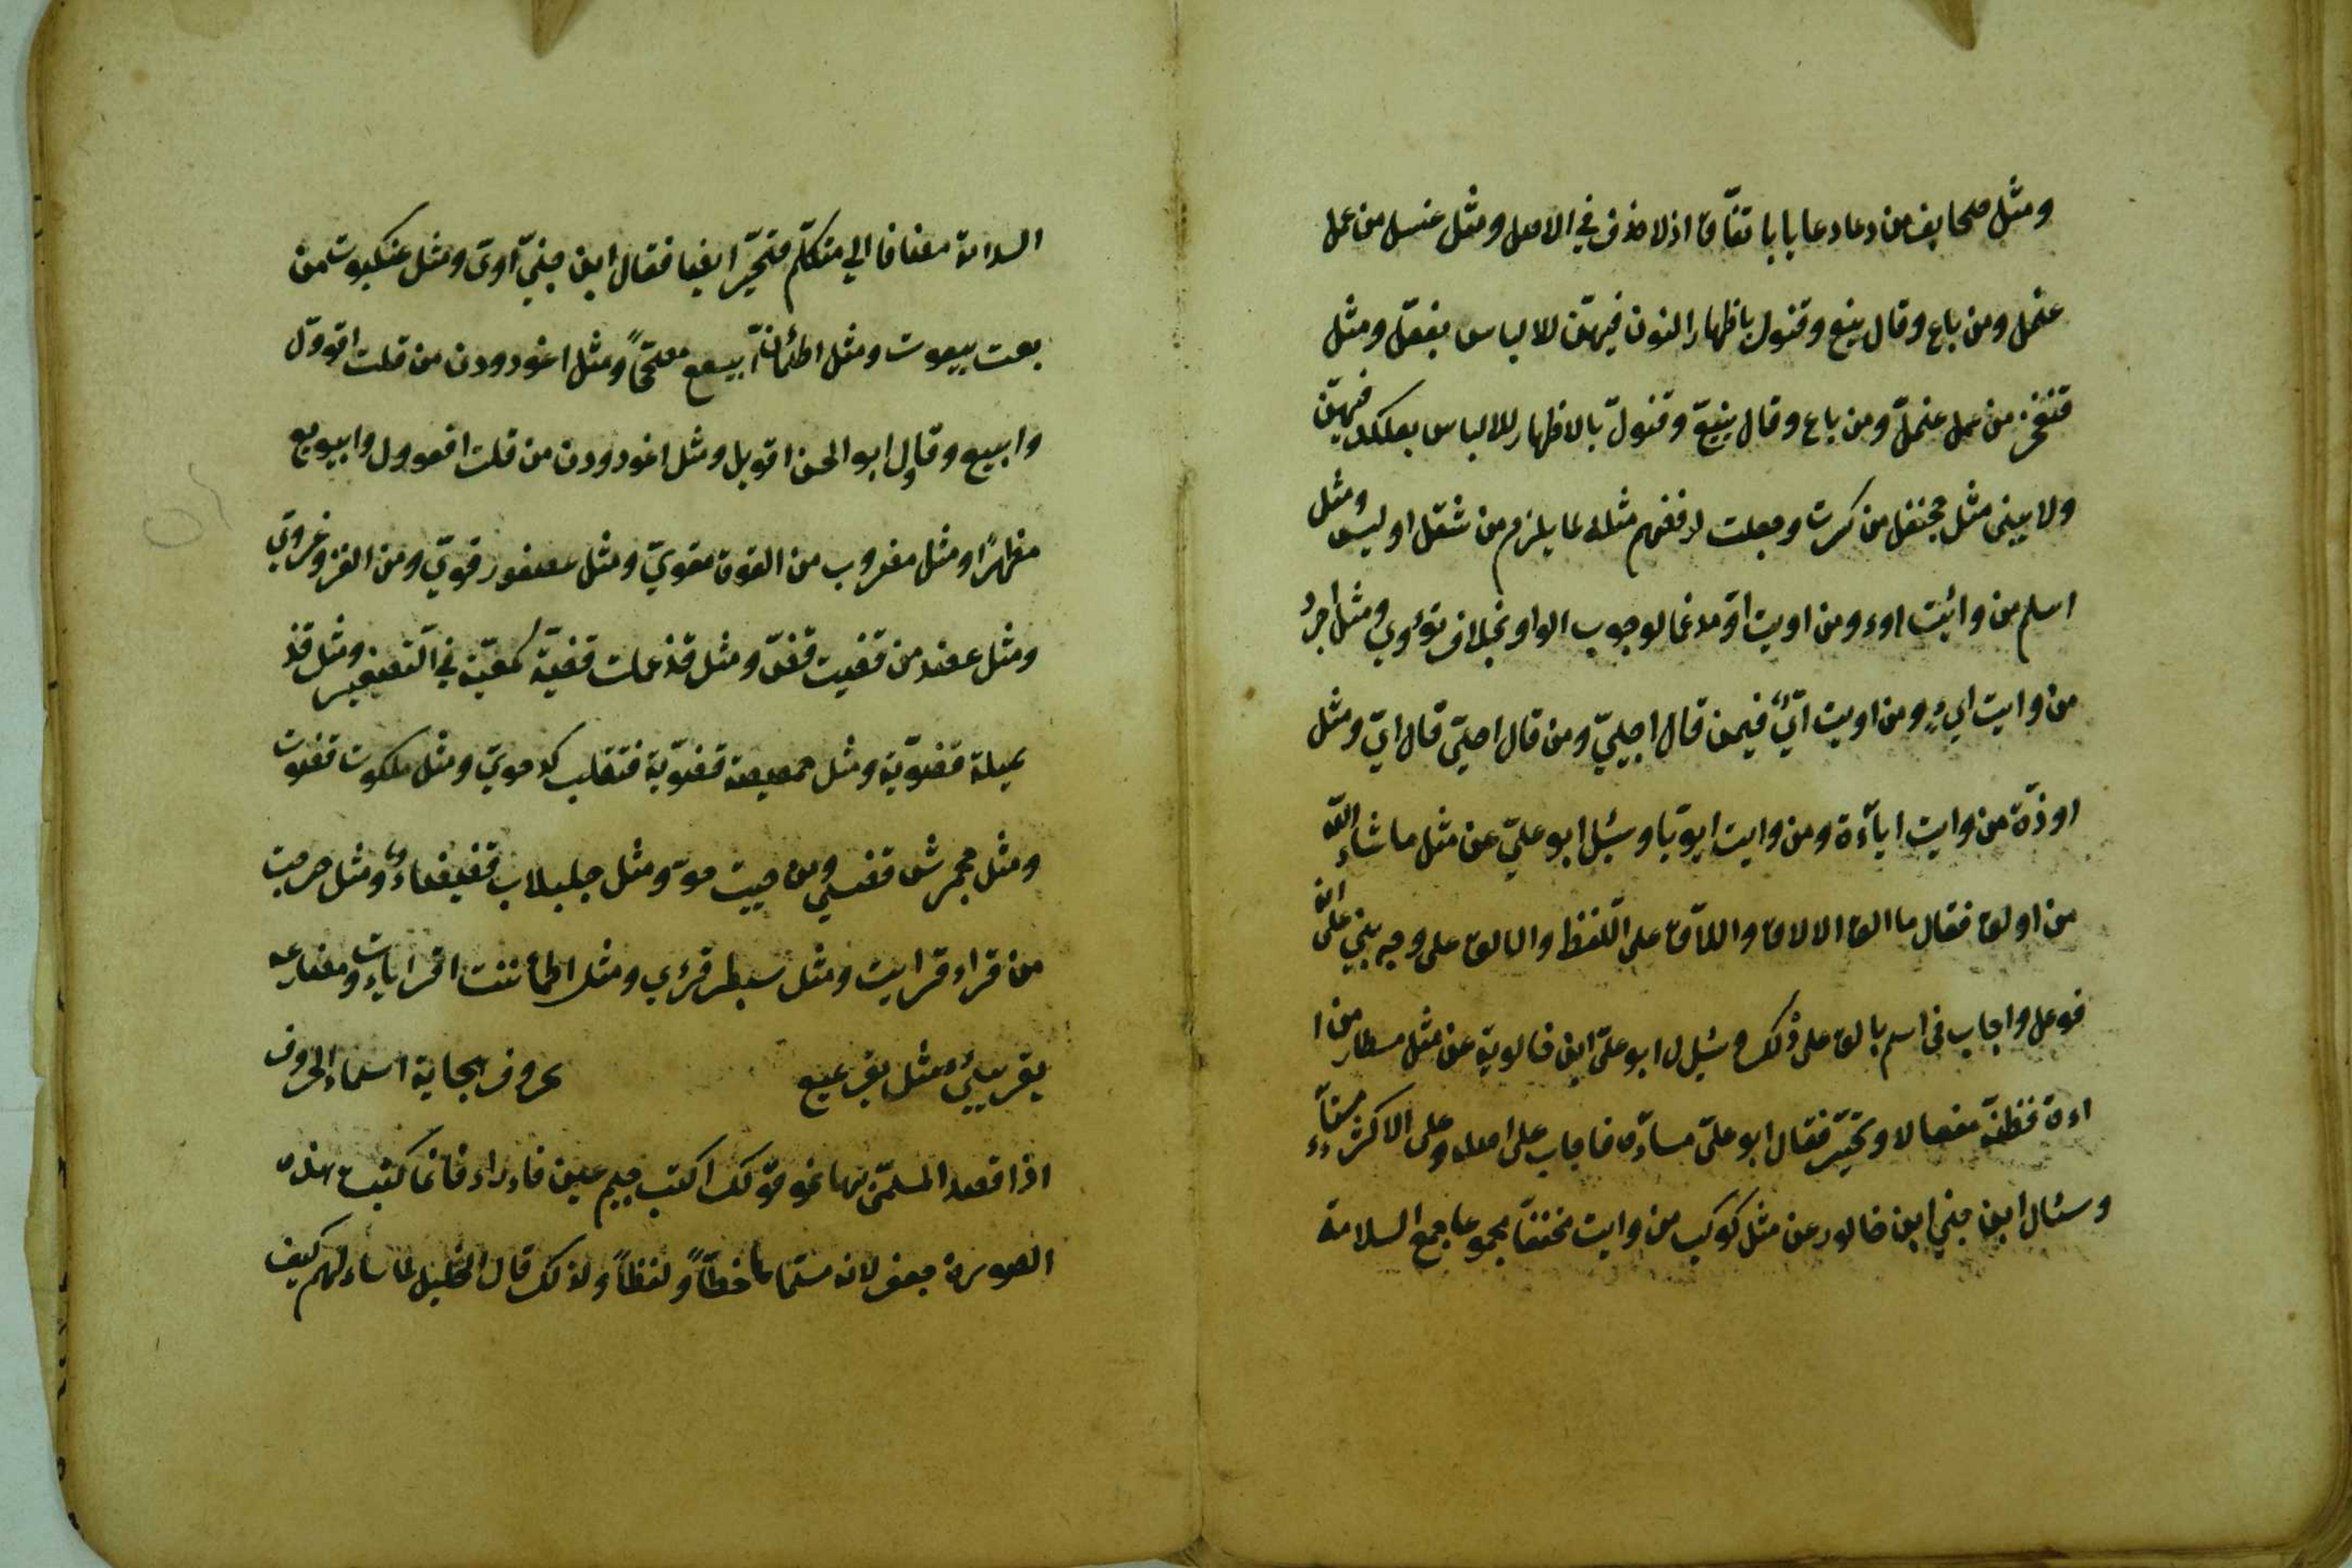 ومثل صحايف من دعا دعايا باتفاق اذ لا حذف في الاصل ومثل عنسل من عمل
عنمل ومن باع وقال بنيع وقنول باظهار النون فيهن للالباس بفعل ومثل
قنفخر من عمل عنمل ومن باع وقال بنيع وقنول بالاظهار للالباس بعلكد فيهن
ولا يبنى مثل جحنفل من كسرت وجعلت لرفضهم مثله لما يلزم من ثقل او لبس ومثل
ابلم من وائيت اوء ومن اويت او مدغما لوجوب الواو بخلاف تؤوي ومثل اجرد
من وايت ايء ومن اويت اي فيمن قال احيي ومن قال احي قال اي ومثل
اوزة من وايت اياءة ومن وايت ايوة يا وسئل ابو علي عن مثل ما شاء الله
من اولق فقال ما الق الالاق واللاق على اللفظ والالق على وجه بني على انه
فوعل واجاب في اسم بالق على ذلك وسئل ابو علي ابن خالوية عن مثل مسطار من ا
اءة فظنه مفعالا وتحير فقال ابو علي مساءة فاجاب على اصله وعلى الاكثر مستاء
وسئال ابن جني ابن خالور عن مثل كوكب من وايت مخففا مجموعا جمع السلامة
السلامة مضافا الي متكلم فتحير ايضا فقال ابن جني اوي ومثل عنكبوت من
بعت بيعوت ومثل اطمأن ابيعع مصححا ومثل اغدودن من قلت اقوول
وابييع وقال ابو الحسن اقويل ومثل اغدودن من قلت اقووول وابيويع
مظهرا ومثل مضروب من القوة مقوي ومثل عصفور قوي ومن الغزو غزوي
ومثل عضد من قضيت قض ومثل قذعملة قضية كمعية في التصغير ومثل قذ
عميلة قضوية ومثل حمصيصة قضوية فتقلب كرحوي ومثل ملكوت قضوت
ومثل جحمرش قضي ومن حييت حو ومثل حلبلاب قضيضاء ومثل دحرجت
من قراء قرايت ومثل سبطر قرءي ومثل اطمأننت اقرايات ومضارعه
يقرييء مثل يقرعيع حروف الهجاية اسماء الحروف
اذا قصد المسمى بها نحو قولك اكتب جيم عين فاء راء فانما كتبت هذه
الصورة جعفر لانه مسماها خطا ولفظا ولذلك قال الخليل لما سالهم كيف